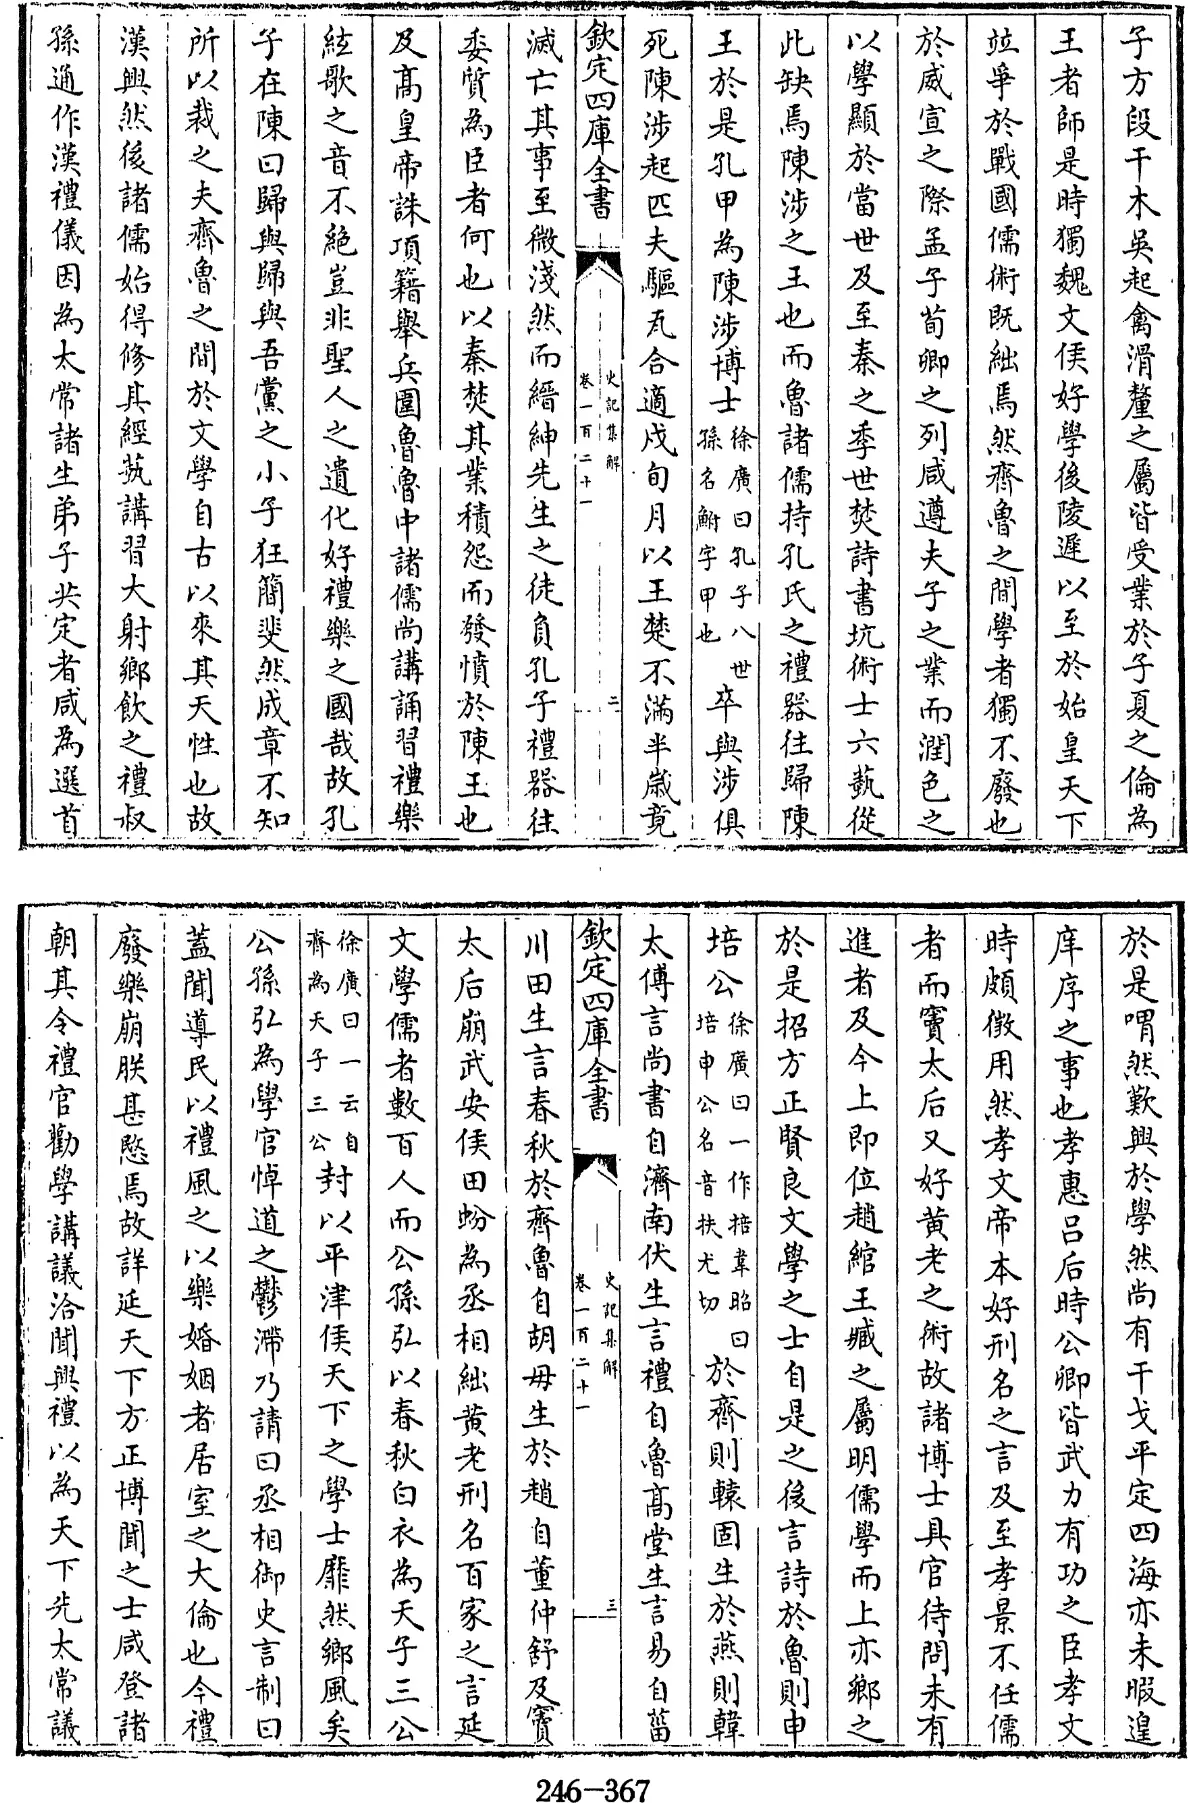 子方段干木吳起禽滑釐之屬皆受業於子夏之倫為
王者師是時獨魏文侯好學後陵遲以至於始皇天下
竝爭於戰國儒術既絀焉然齊魯之間學者獨不廢也
於威宣之際孟子荀卿之列咸遵夫子之業而潤色之
以學顯於當世及至秦之季世焚詩書坑術士六藝從
此缺焉陳涉之王也而魯諸儒持孔氏之禮器往歸陳
王於是孔甲為陳涉博士徐廣曰孔子八世孫名鮒字甲也卒與涉俱
死陳涉起匹夫驅瓦合適戍旬月以王楚不滿半歲竟
欽定四庫全書
史記集解
卷一百二十一
二
滅亡其事至微淺然而縉紳先生之徒負孔子禮器往
委質為臣者何也以秦焚其業積怨而發憤於陳王也
及高皇帝誅項籍舉兵圍魯魯中諸儒尚講誦習禮樂
絃歌之音不絕豈非聖人之遺化好禮樂之國哉故孔
子在陳曰歸與歸與吾黨之小子狂簡斐然成章不知
所以裁之夫齊魯之間於文學自古以來其天性也故
漢興然後諸儒始得修其經蓺講習大射鄉飲之禮叔
孫通作漢禮儀因為太常諸生弟子共定者咸為選首
於是喟然歎興於學然尚有干戈平定四海亦未暇遑
庠序之事也孝惠呂后時公卿皆武力有功之臣孝文
時頗徵用然孝文帝本好刑名之言及至孝景不任儒
者而竇太后又好黄老之術故諸博士具官待問未有
進者及今上即位趙綰王臧之屬明儒學而上亦鄉之
於是招方正賢良文學之士自是之後言詩於魯則申
培公徐廣曰一作掊韋昭曰培申公名音扶尤切於齊則轅固生於燕則韓
太傅言尚書自濟南伏生言禮自魯髙堂生言易自菑
欽定四庫全書
史記集解
卷一百二十一
三
川田生言春秋於齊魯自胡毋生於趙自董仲舒及竇
太后崩武安侯田蚡為丞相絀黄老刑名百家之言延
文學儒者數百人而公孫弘以春秋白衣為天子三公
徐廣曰一云自齊為天子三公封以平津侯天下之學士靡然鄉風矣
公孫弘為學官悼道之鬱滯乃請曰丞相御史言制曰
蓋聞導民以禮風之以樂婚姻者居室之大倫也今禮
廢樂崩朕甚愍焉故詳延天下方正博聞之士咸登諸
朝其令禮官勸學講議洽聞興禮以為天下先太常議
246-367